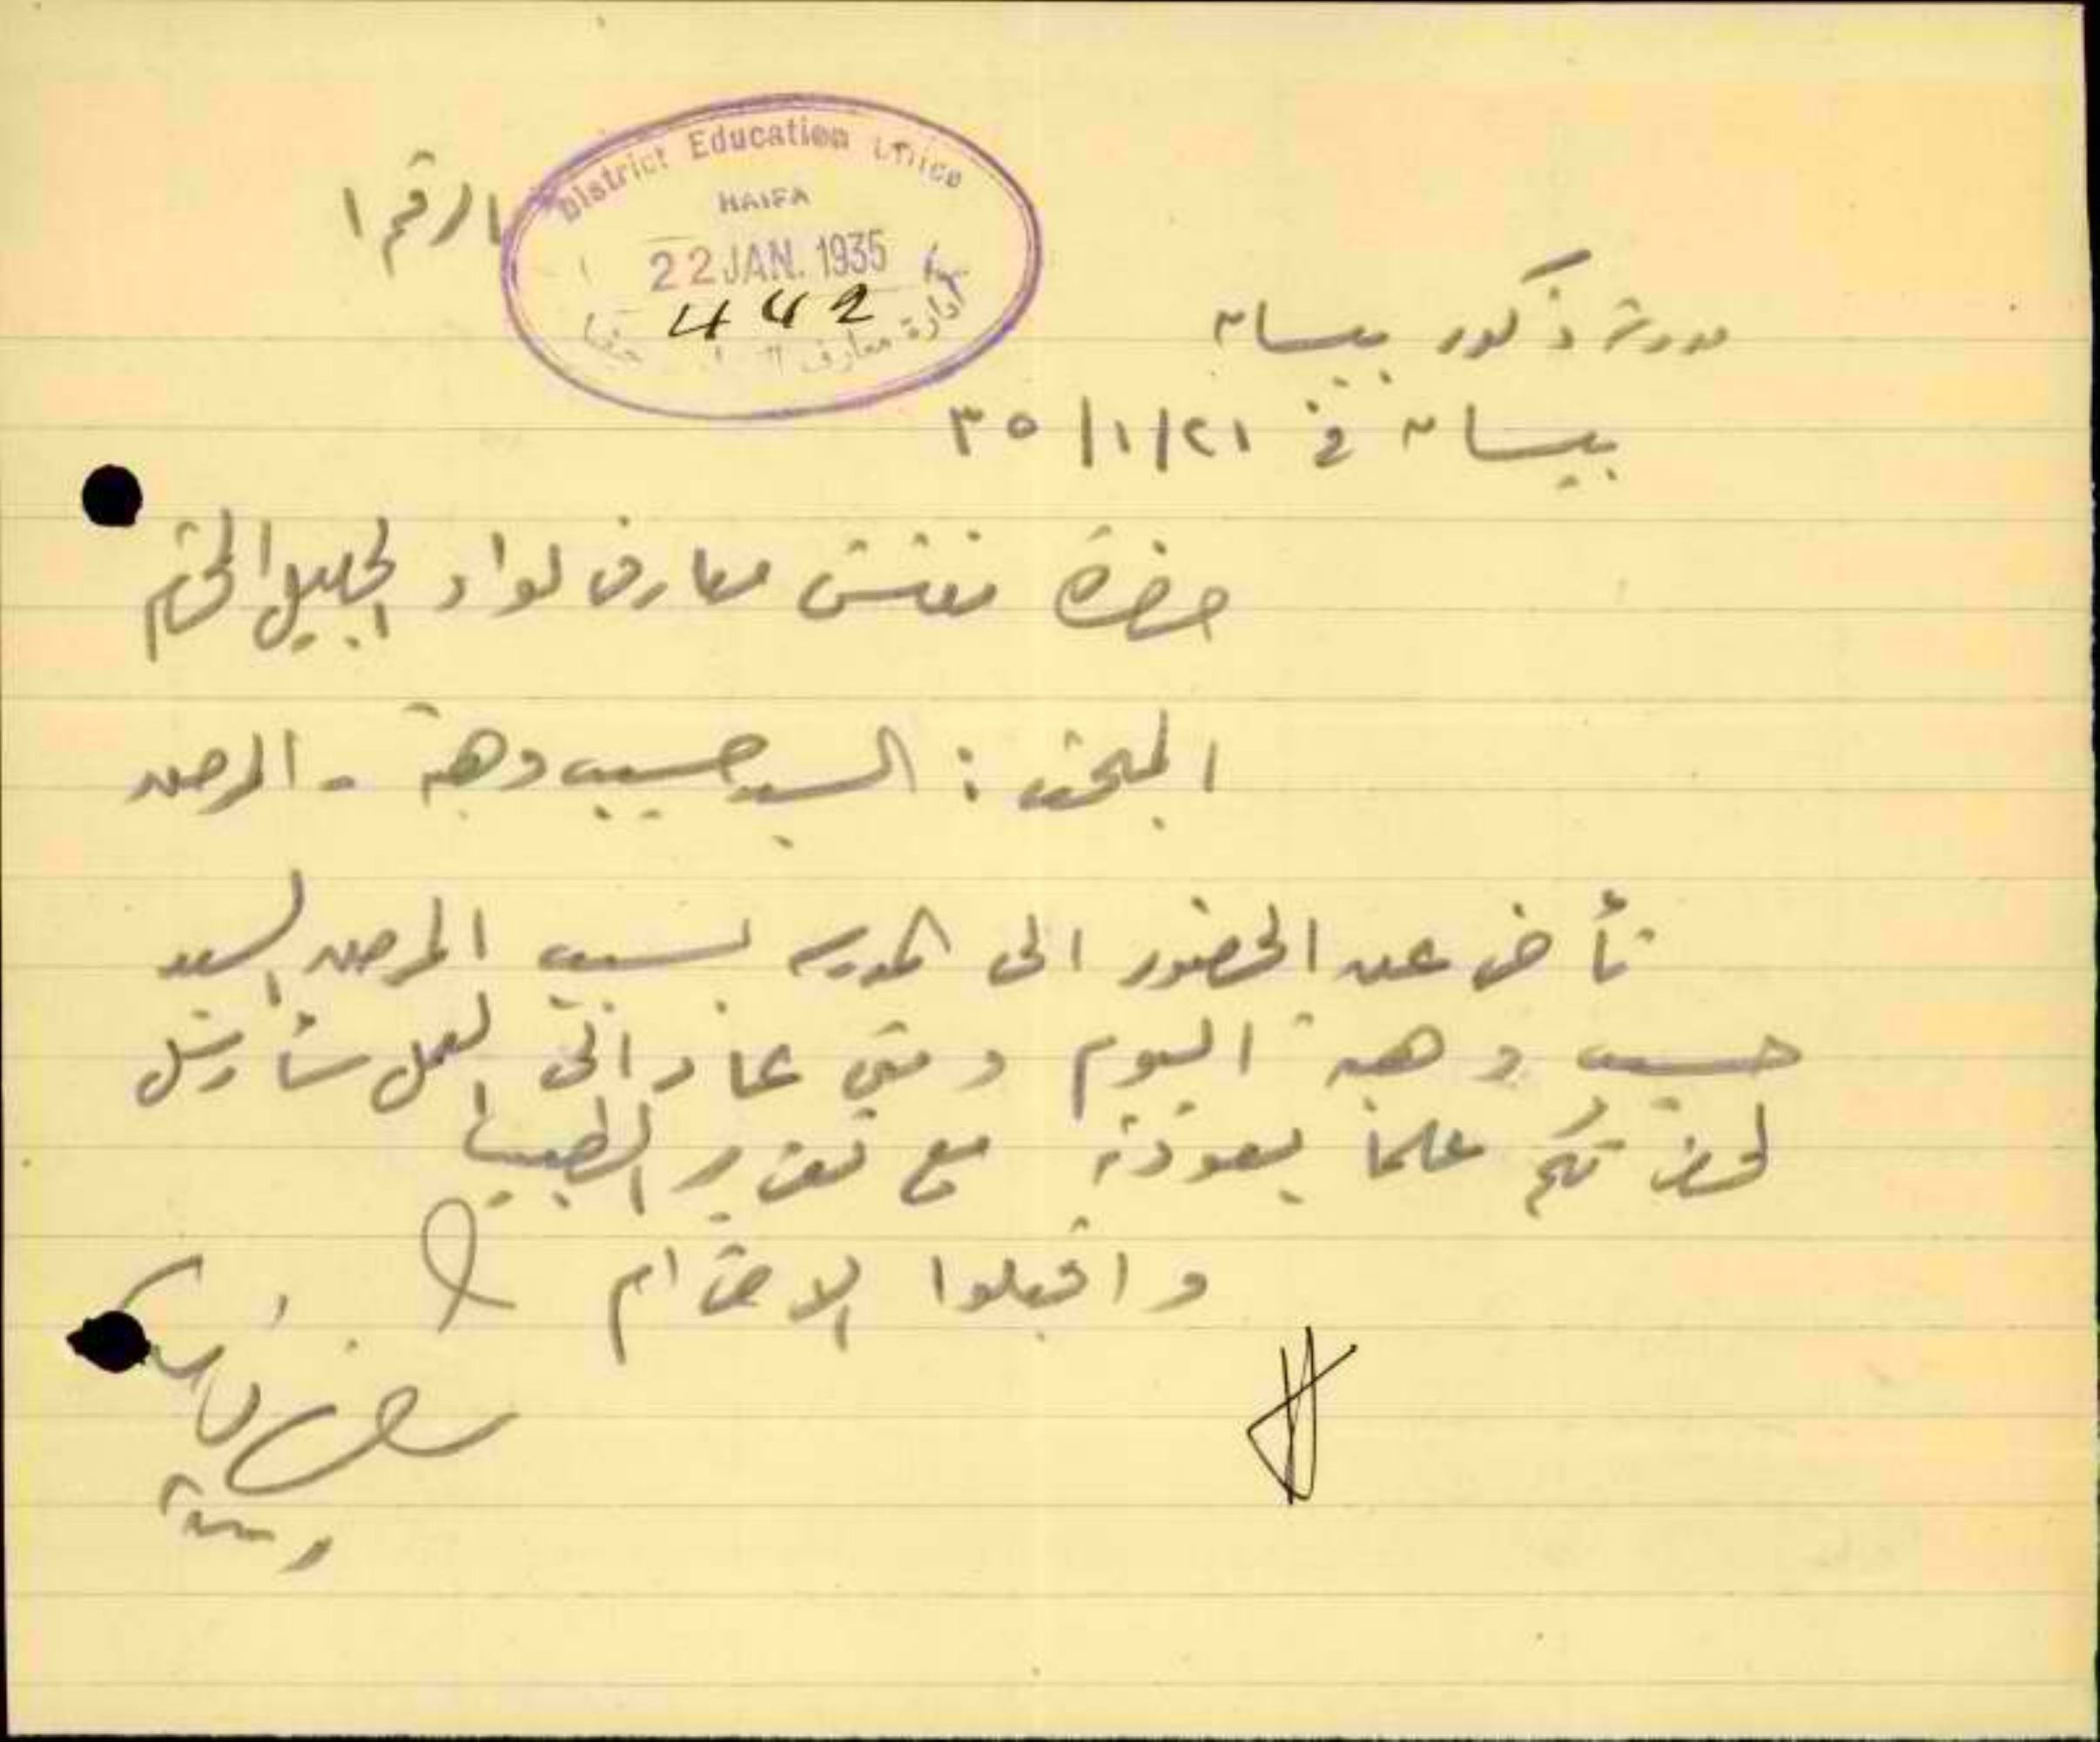 الرقم ١
District Education Office
HAIFA
22 JAN. 1935
442
ادارة معارف حيفا
مدرسة ذكور بيسان
بيسان في ٢١/١/٣٥
حضرة مفتش معارف لواء الجليل المحترم
المبحث : السيد حسيب وهبة - المرض
تأخر عن الحضور الى المدرسة بسبب المرض السيد
حسيب وهبة اليوم ومتى عاد الى العمل سأرسل
لحضرتكم علما بعودته مع تقرير الطبيب
واقبلوا الاحترام